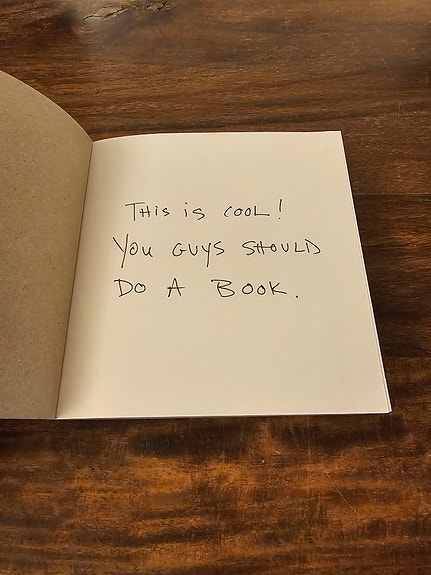 THIS iS COOL!
YOU GUYS SHOULD
DO A BOOK.